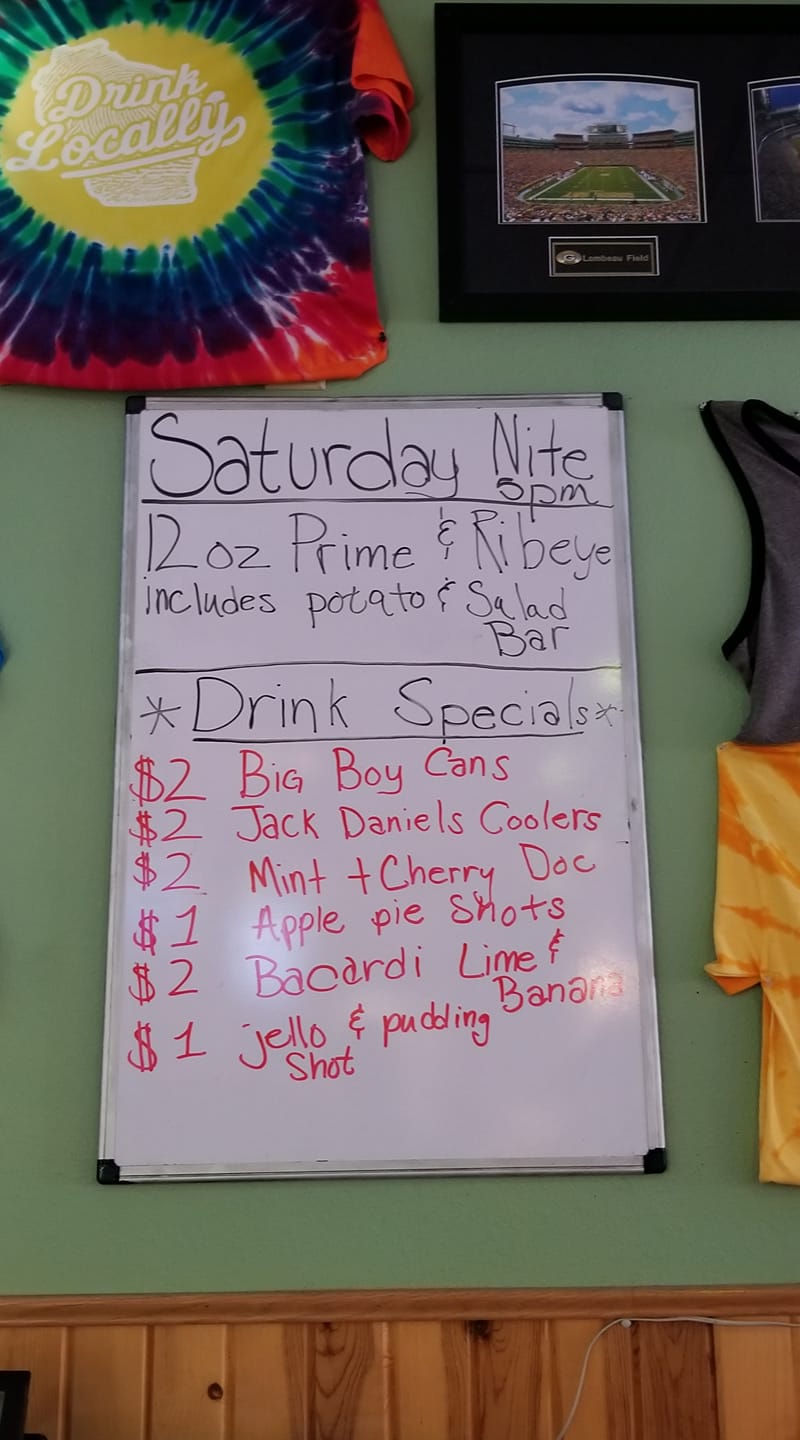 Drink
Locally
G Lambeau Field
Saturday Nite
5pm
12 oz Prime & Ribeye
includes potato & Salad
Bar
*Drink Specials*
$2 Big Boy Cans
$2 Jack Daniels Coolers
$2 Mint + Cherry Doc
$1 Apple pie Shots
$2 Bacardi Lime &
Banana
$1 jello & pudding
Shot